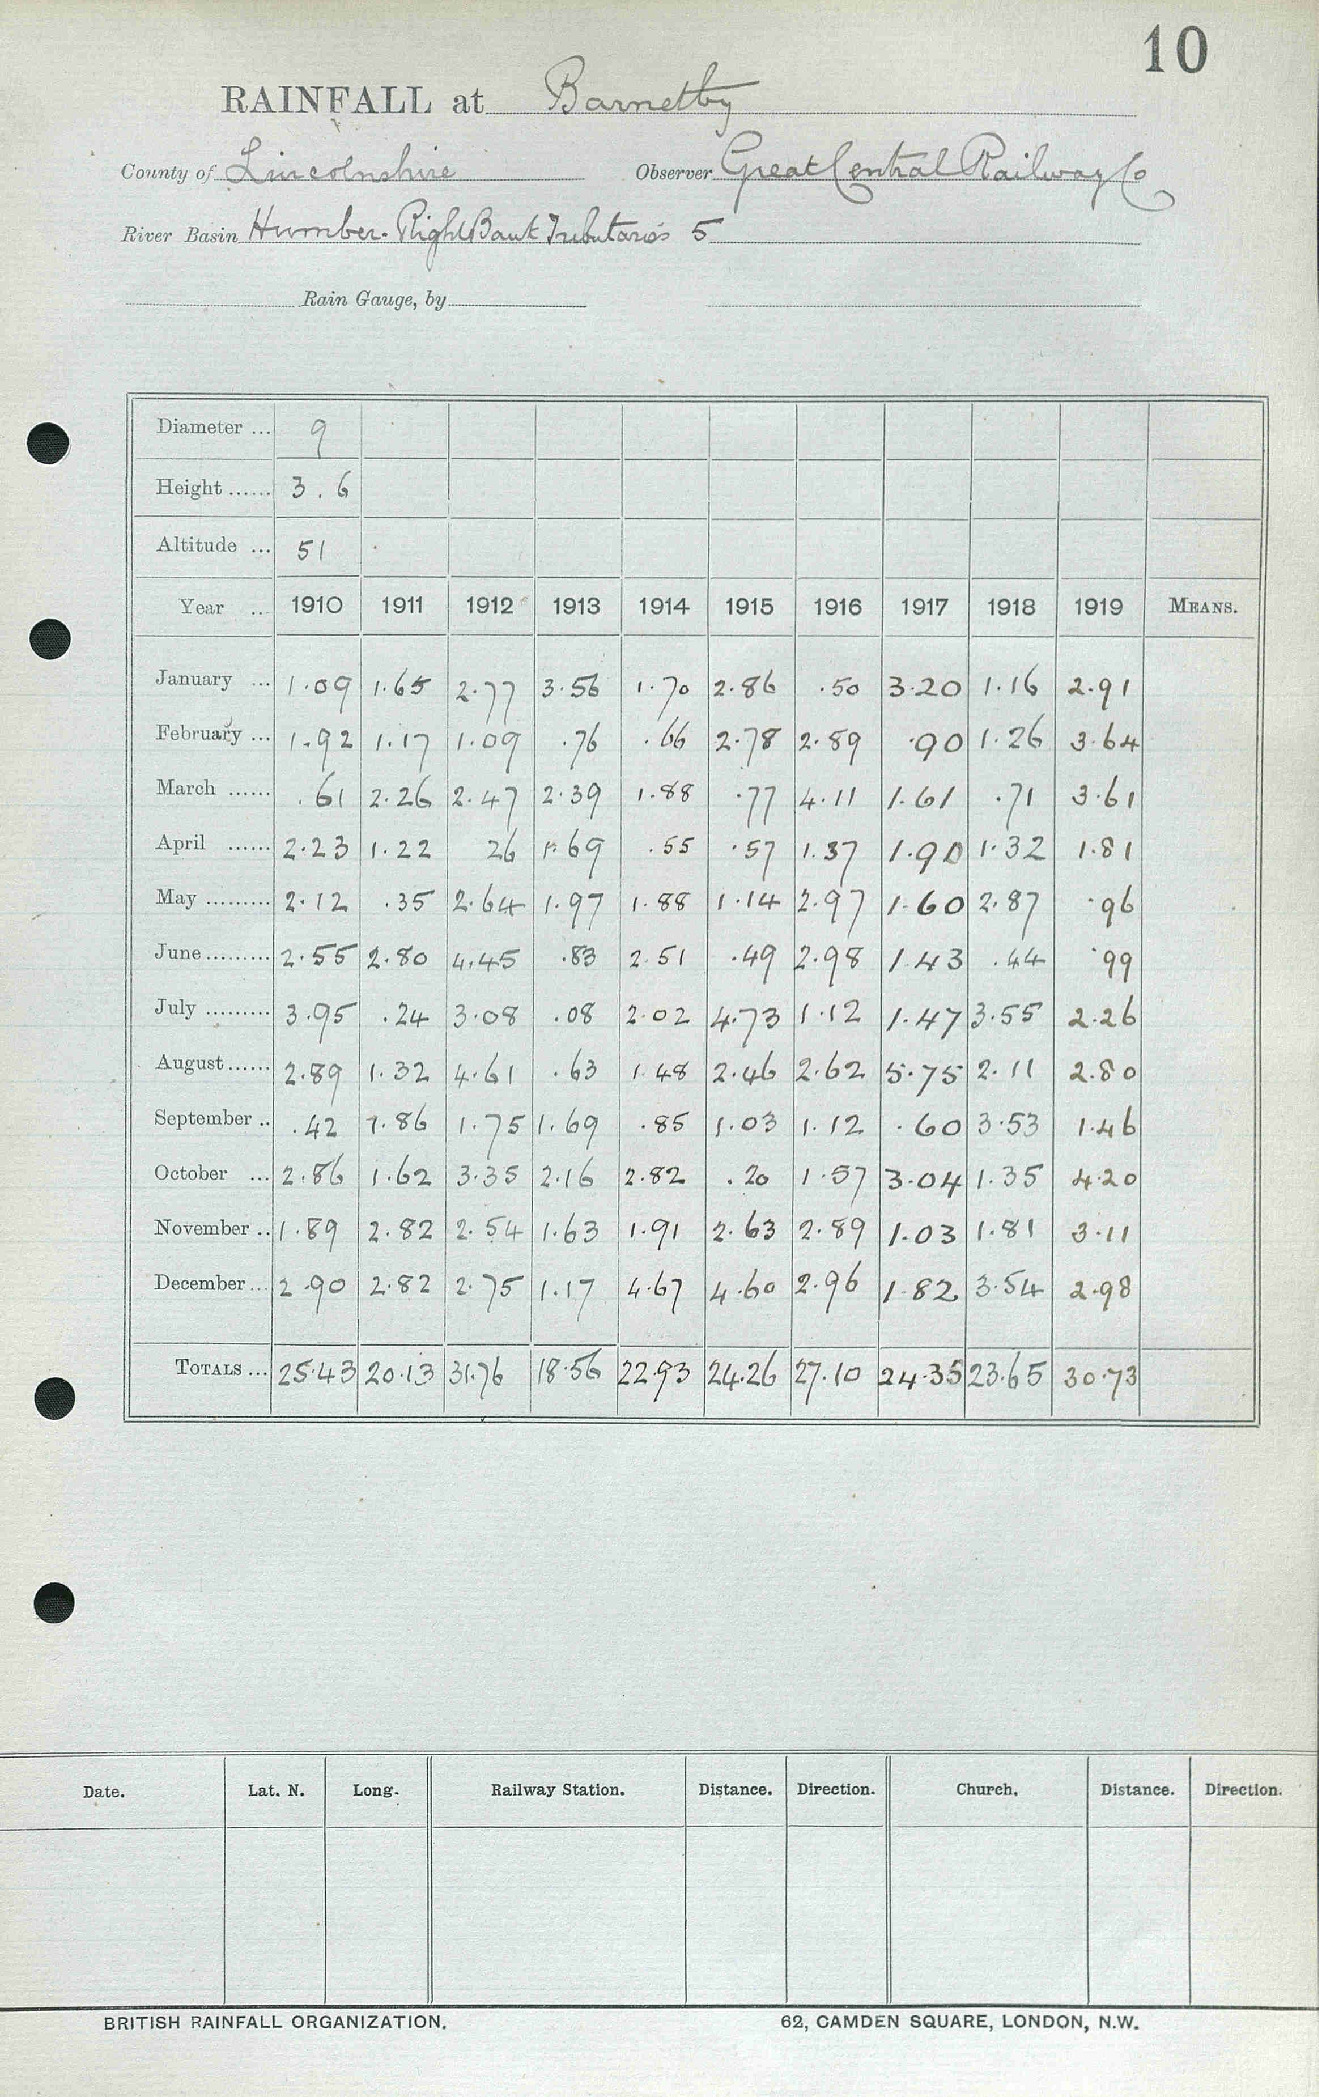 10
RAINFALL at Barnetby
County of Lincolnshire Observer Great Central Railway Co
River Basin Humber. Right Bank Tributaries 5
Rain Gauge, by
Diameter ... 9
Height ...... 3.6
Altitude ... 51
Year ... 1910 1911 1912 1913 1914 1915 1916 1917 1918 1919 MEANS.
January ... 1.09 1.65 2.77 3.56 1.70 2.86 .50 3.20 1.16 2.91
February ... 1.92 1.17 1.09 .76 .66 2.78 2.89 .90 1.26 3.64
March ...... .61 2.26 2.47 2.39 1.88 .77 4.11 1.61 .71 3.61
April ...... 2.23 1.22 26 1.69 .55 .57 1.37 1.90 1.32 1.81
May ......... 2.12 .35 2.64 1.97 1.88 1.14 2.97 1.60 2.87 .96
June ......... 2.55 2.80 4.45 .83 2.51 .49 2.98 1.43 .44 .99
July ......... 3.95 .24 3.08 .08 2.02 4.73 1.12 1.47 3.55 2.26
August ...... 2.89 1.32 4.61 .63 1.48 2.46 2.62 5.75 2.11 2.80
September .. .42 1.86 1.75 1.69 .85 1.03 1.12 .60 3.53 1.46
October ... 2.86 1.62 3.35 2.16 2.82 .20 1.57 3.04 1.35 4.20
November .. 1.89 2.82 2.54 1.63 1.91 2.63 2.89 1.03 1.81 3.11
December ... 2.90 2.82 2.75 1.17 4.67 4.60 2.96 1.82 3.54 2.98
TOTALS ... 25.43 20.13 31.76 18.56 22.93 24.26 27.10 24.35 23.65 30.73
Date. Lat. N. Long. Railway Station. Distance. Direction. Church. Distance. Direction.
BRITISH RAINFALL ORGANIZATION. 62, CAMDEN SQUARE, LONDON, N.W.